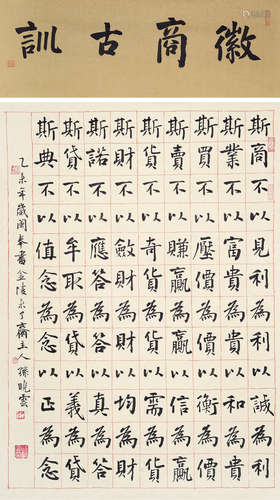 徽商古訓
斯商不以見利為利以誠為利
斯業不以富貴為貴以和為貴
斯買不以壓價為價以衡為價
斯賣不以賺贏為贏以信為贏
斯貨不以奇貨為貨以需為貨
斯財不以斂財為財以均為財
斯諾不以應答為答以真為答
斯貸不以牟取為貸以義為貸
斯典不以值念為念以正為念
乙未年歲闌奉書金陵齋主人孫曉雲